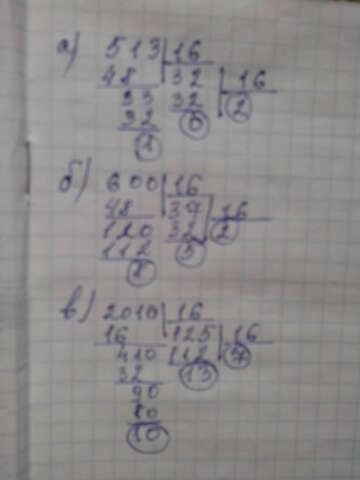 а) 513 | 16
48 32 | 16
33 32 2
32 0
1
б) 600 | 16
48 37 | 16
120 32 2
112 5
8
в) 2010 | 16
16 125 | 16
410 112 7
32 13
90
80
10